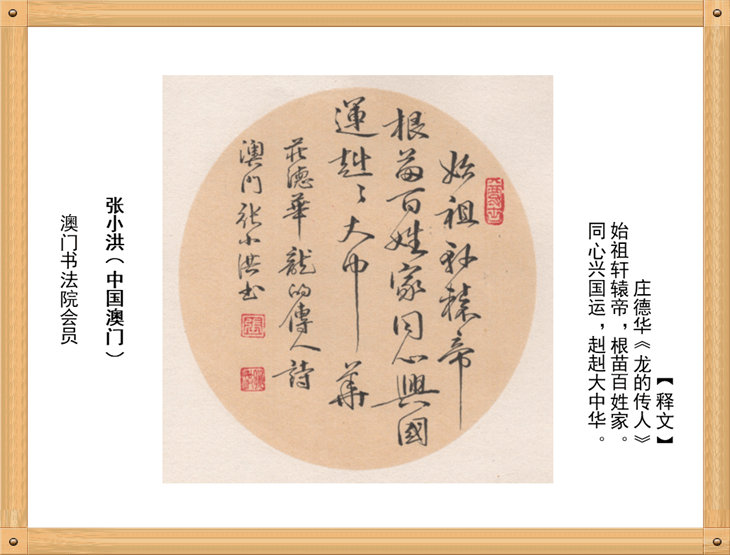 【释文】
庄德华《龙的传人》
始祖轩辕帝，根苗百姓家。
同心兴国运，赳赳大中华。
始祖轩辕帝
根苗百姓家同心興國
運赳〻大中華
莊德華龍的傳人詩
澳门张小洪书
张小洪（中国澳门）
澳门书法院会员